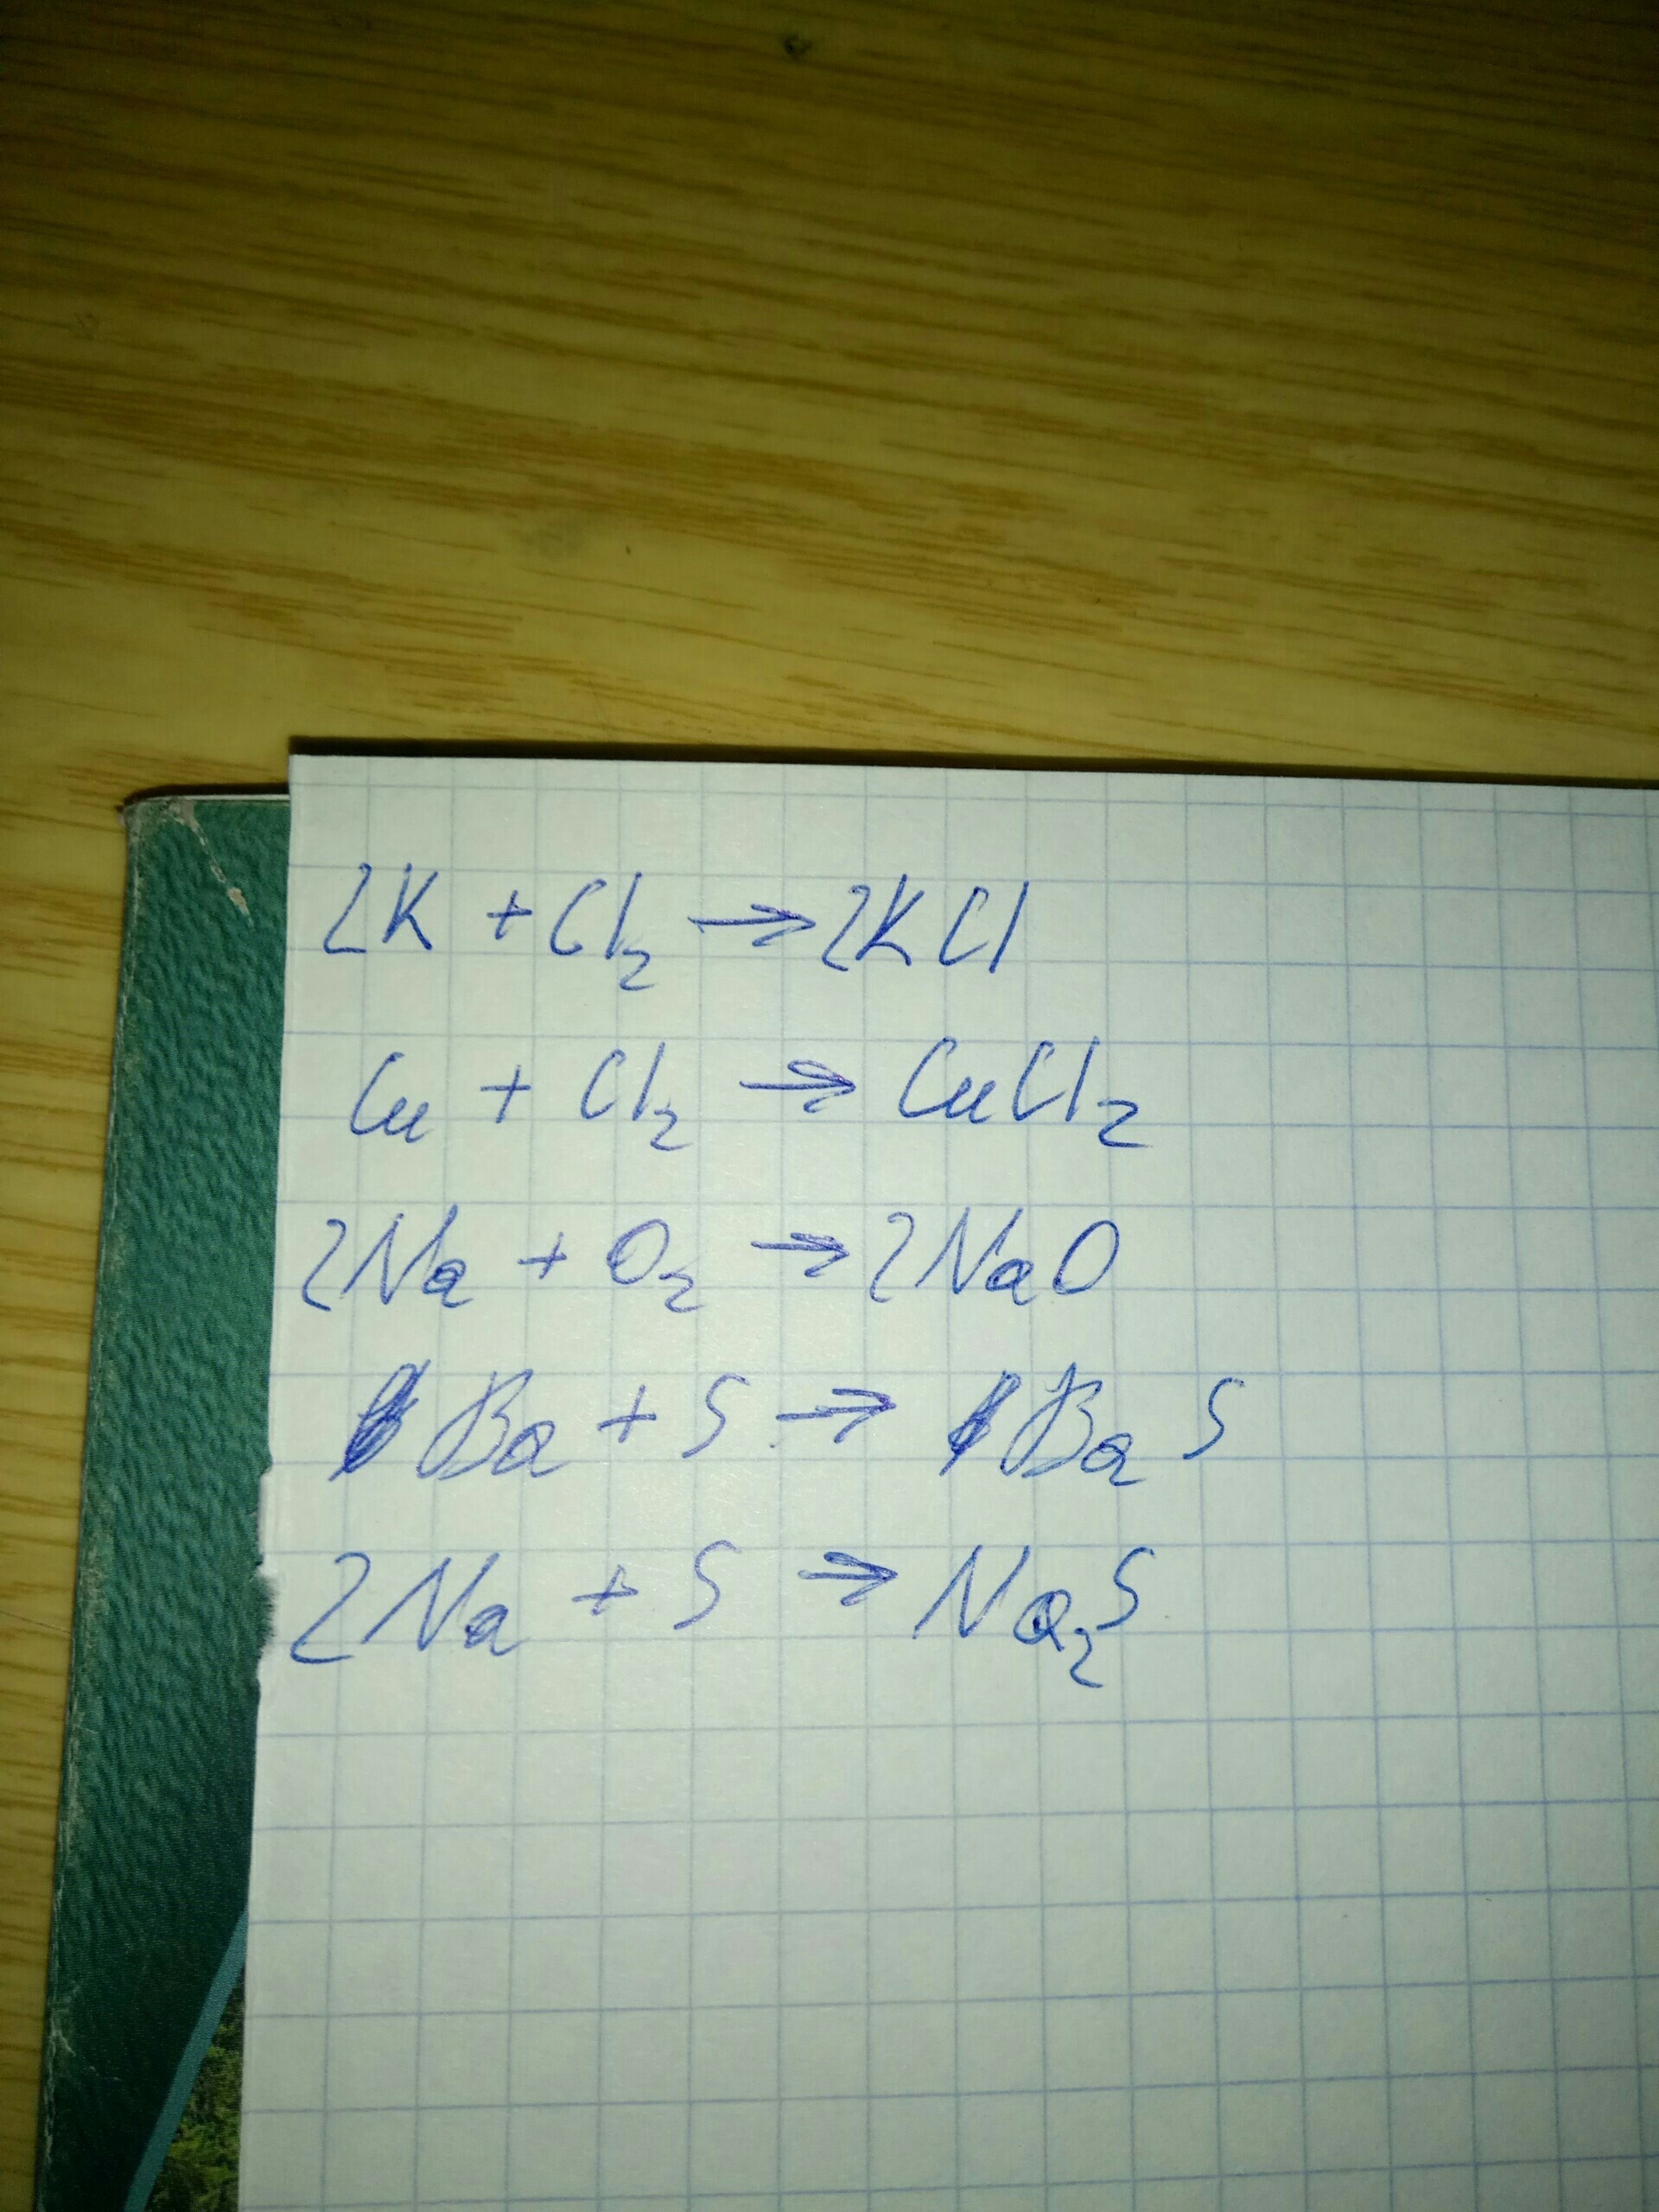 2K + Cl₂ → 2KCl
Cu + Cl₂ → CuCl₂
2Na + O₂ → 2NaO
Ba + S → Ba S
2Na + S → Na₂S